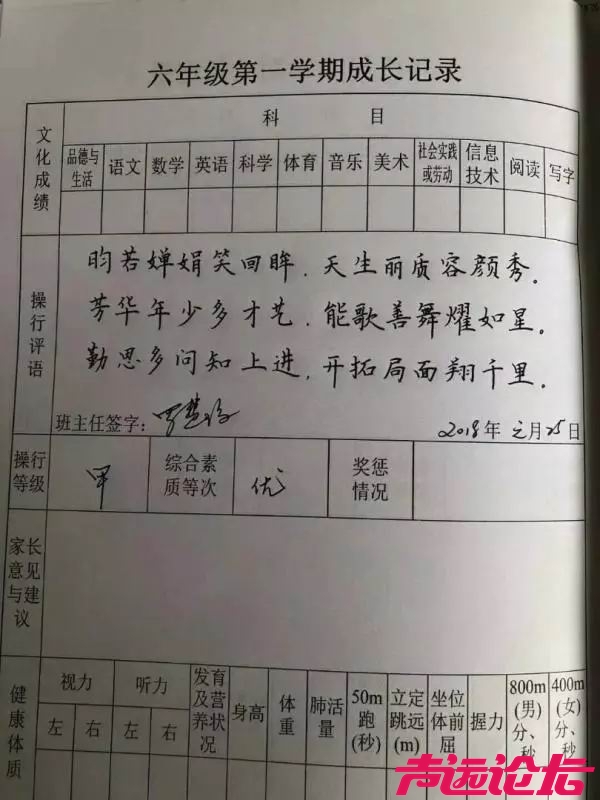 六年级第一学期成长记录
文化成绩
科 目
品德与生活 语文 数学 英语 科学 体育 音乐 美术 社会实践或劳动 信息技术 阅读 写字
操行评语
昀若婵娟笑回眸，天生丽质容颜秀。
芳华年少多才艺，能歌善舞耀如星。
勤思多问知上进，开拓局面翔千里。
班主任签字：
2018年元月25日
操行等级 甲 综合素质等次 优 奖惩情况
家长意见与建议
健康体质
视力 听力 发育及营养状况 身高 体重 肺活量 50m跑(秒) 立定跳远(m) 坐位体前屈 握力 800m(男)分、秒 400m(女)分、秒
左 右 左 右
声远论坛